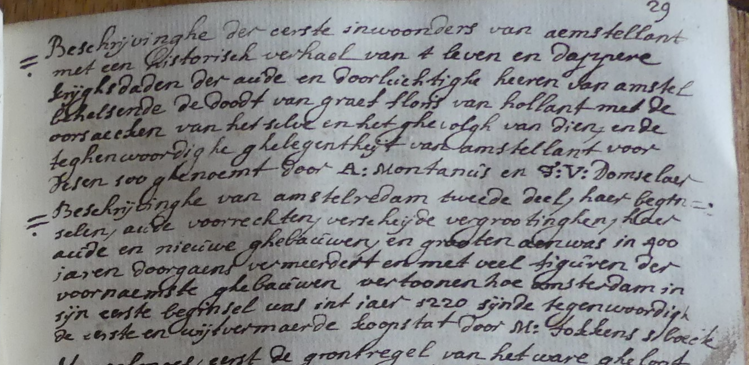 29
= Beschrijvinghe der eerste inwoonders van aemstellant
met een historisch verhael van t leven en dappere
krijghsdaden der aude en doorluchtighe heeren van amstel
behelsende de doodt van graef floris van hollant met de
oorsaecken van het selve en het ghevolgh van dien, ende
teghenwoordighe ghelegentheyt van amstellant voor
desen soo ghenoemt door A: Montanus en T: V: Domselaer
= Beschrijvinghe van amstelredam tweede deel, haer begin=
selen, aude voorrechten, verscheijde vergrootinghen, haer
aude en nieuwe ghebauwen, en grooten aenwas in 400
jaren doorgaens vermeerdert en met veel figuren der
voornaemste ghebauwen vertoonen hoe amsterdam in
sijn eerste beginsel was int jaer 1220 sijnde tegenwoordigh
de eerste en wijtvermaerde koopstat door M: Fokkens
eerst de grontregel van het ware gheloof